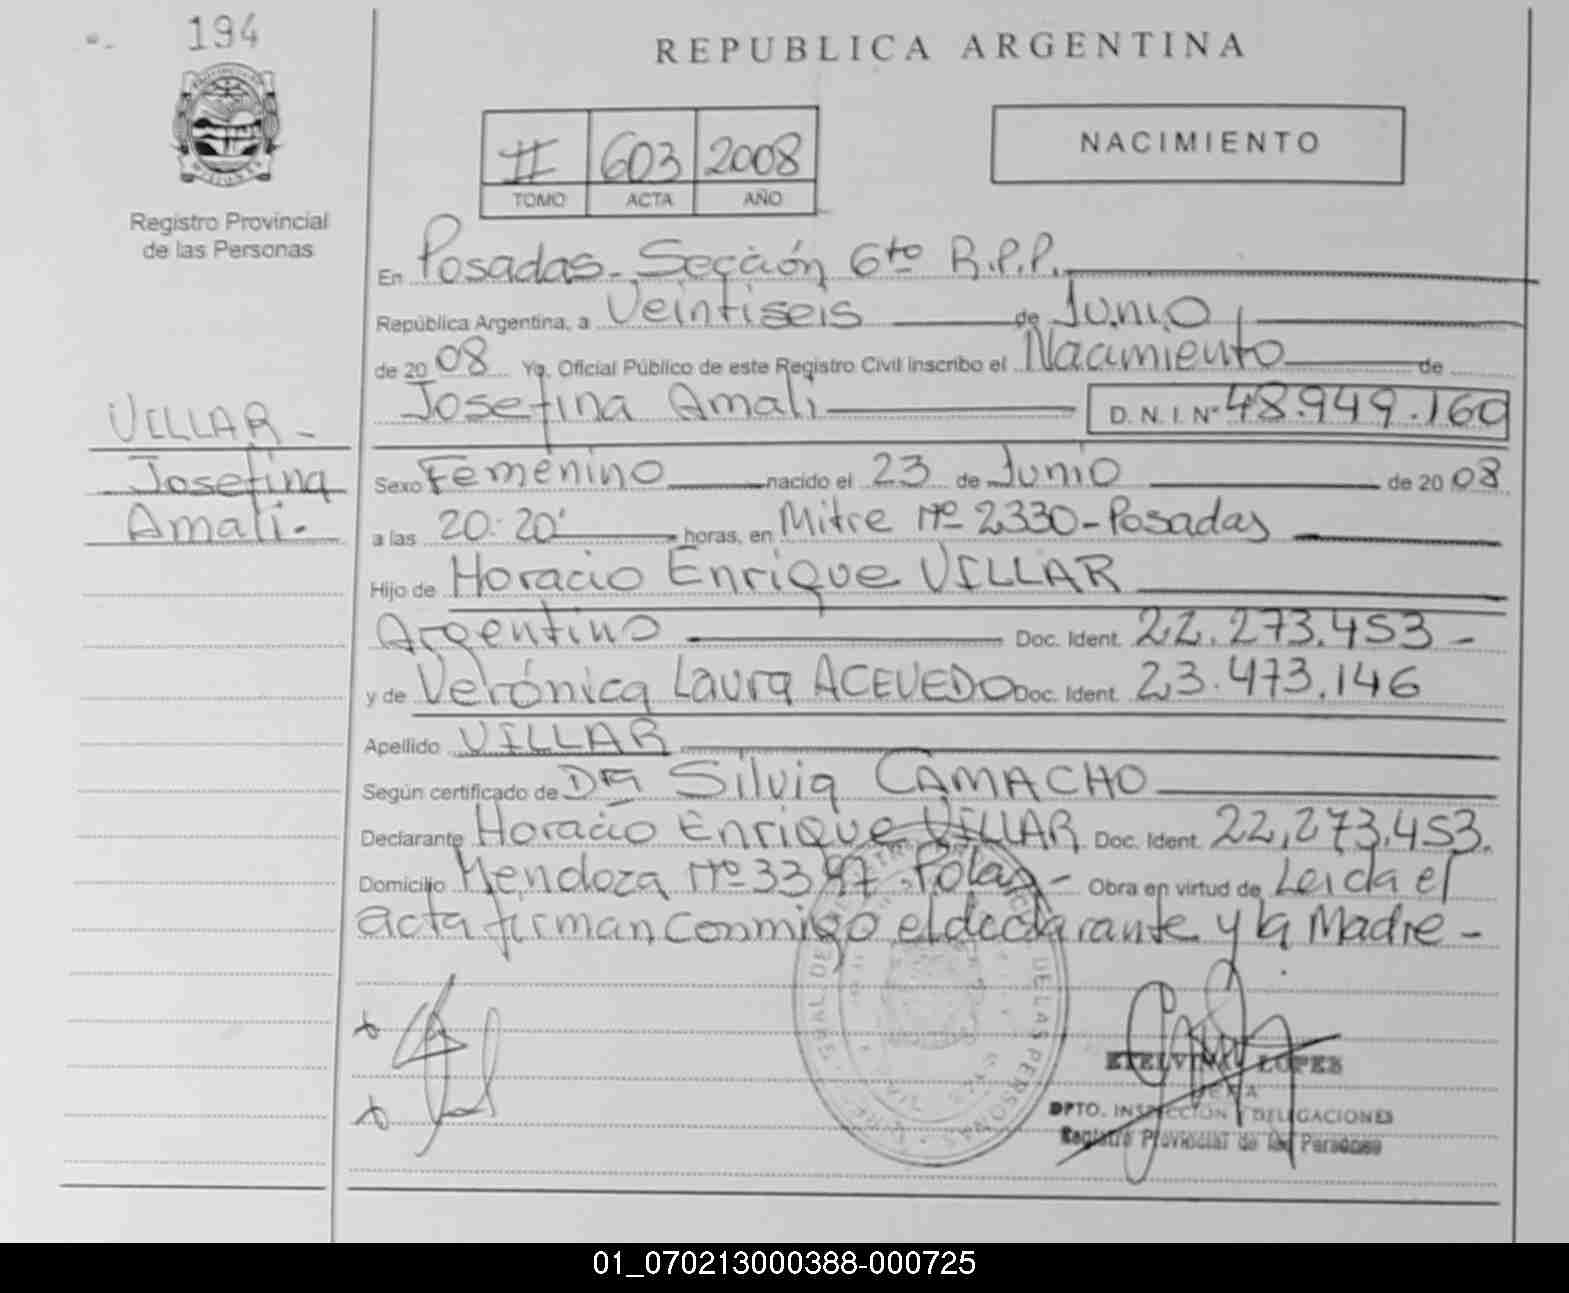 194
REPUBLICA ARGENTINA
Registro Provincial
de las Personas
II 603 2008
TOMO ACTA AÑO
NACIMIENTO
En Posadas - Sección 6to R.P.P.
República Argentina, a Veintiseis de Junio
de 2008 Yo, Oficial Público de este Registro Civil inscribo el Nacimiento de
Josefina Amali D.N.I. Nº 48.949.160
VILLAR -
Josefina
Amali -
Sexo Femenino nacido el 23 de Junio de 2008
a las 20:20' horas, en Mitre Nº 2330 - Posadas
Hijo de Horacio Enrique VILLAR
Argentino Doc. Ident. 22.273.453 -
y de Verónica Laura ACEVEDO Doc. Ident. 23.473.146
Apellido VILLAR
Según certificado de Dra Silvia CAMACHO
Declarante Horacio Enrique VILLAR Doc. Ident. 22.273.453.
Domicilio Mendoza Nº 33 - Obra en virtud de Leida el
acta firman conmigo el declarante y la Madre -
DE LAS PERSONAS
ETELVINA LOPES
JEFA
DPTO. INSPECCION Y DELEGACIONES
Registro Provincial de las Personas
01_070213000388-000725